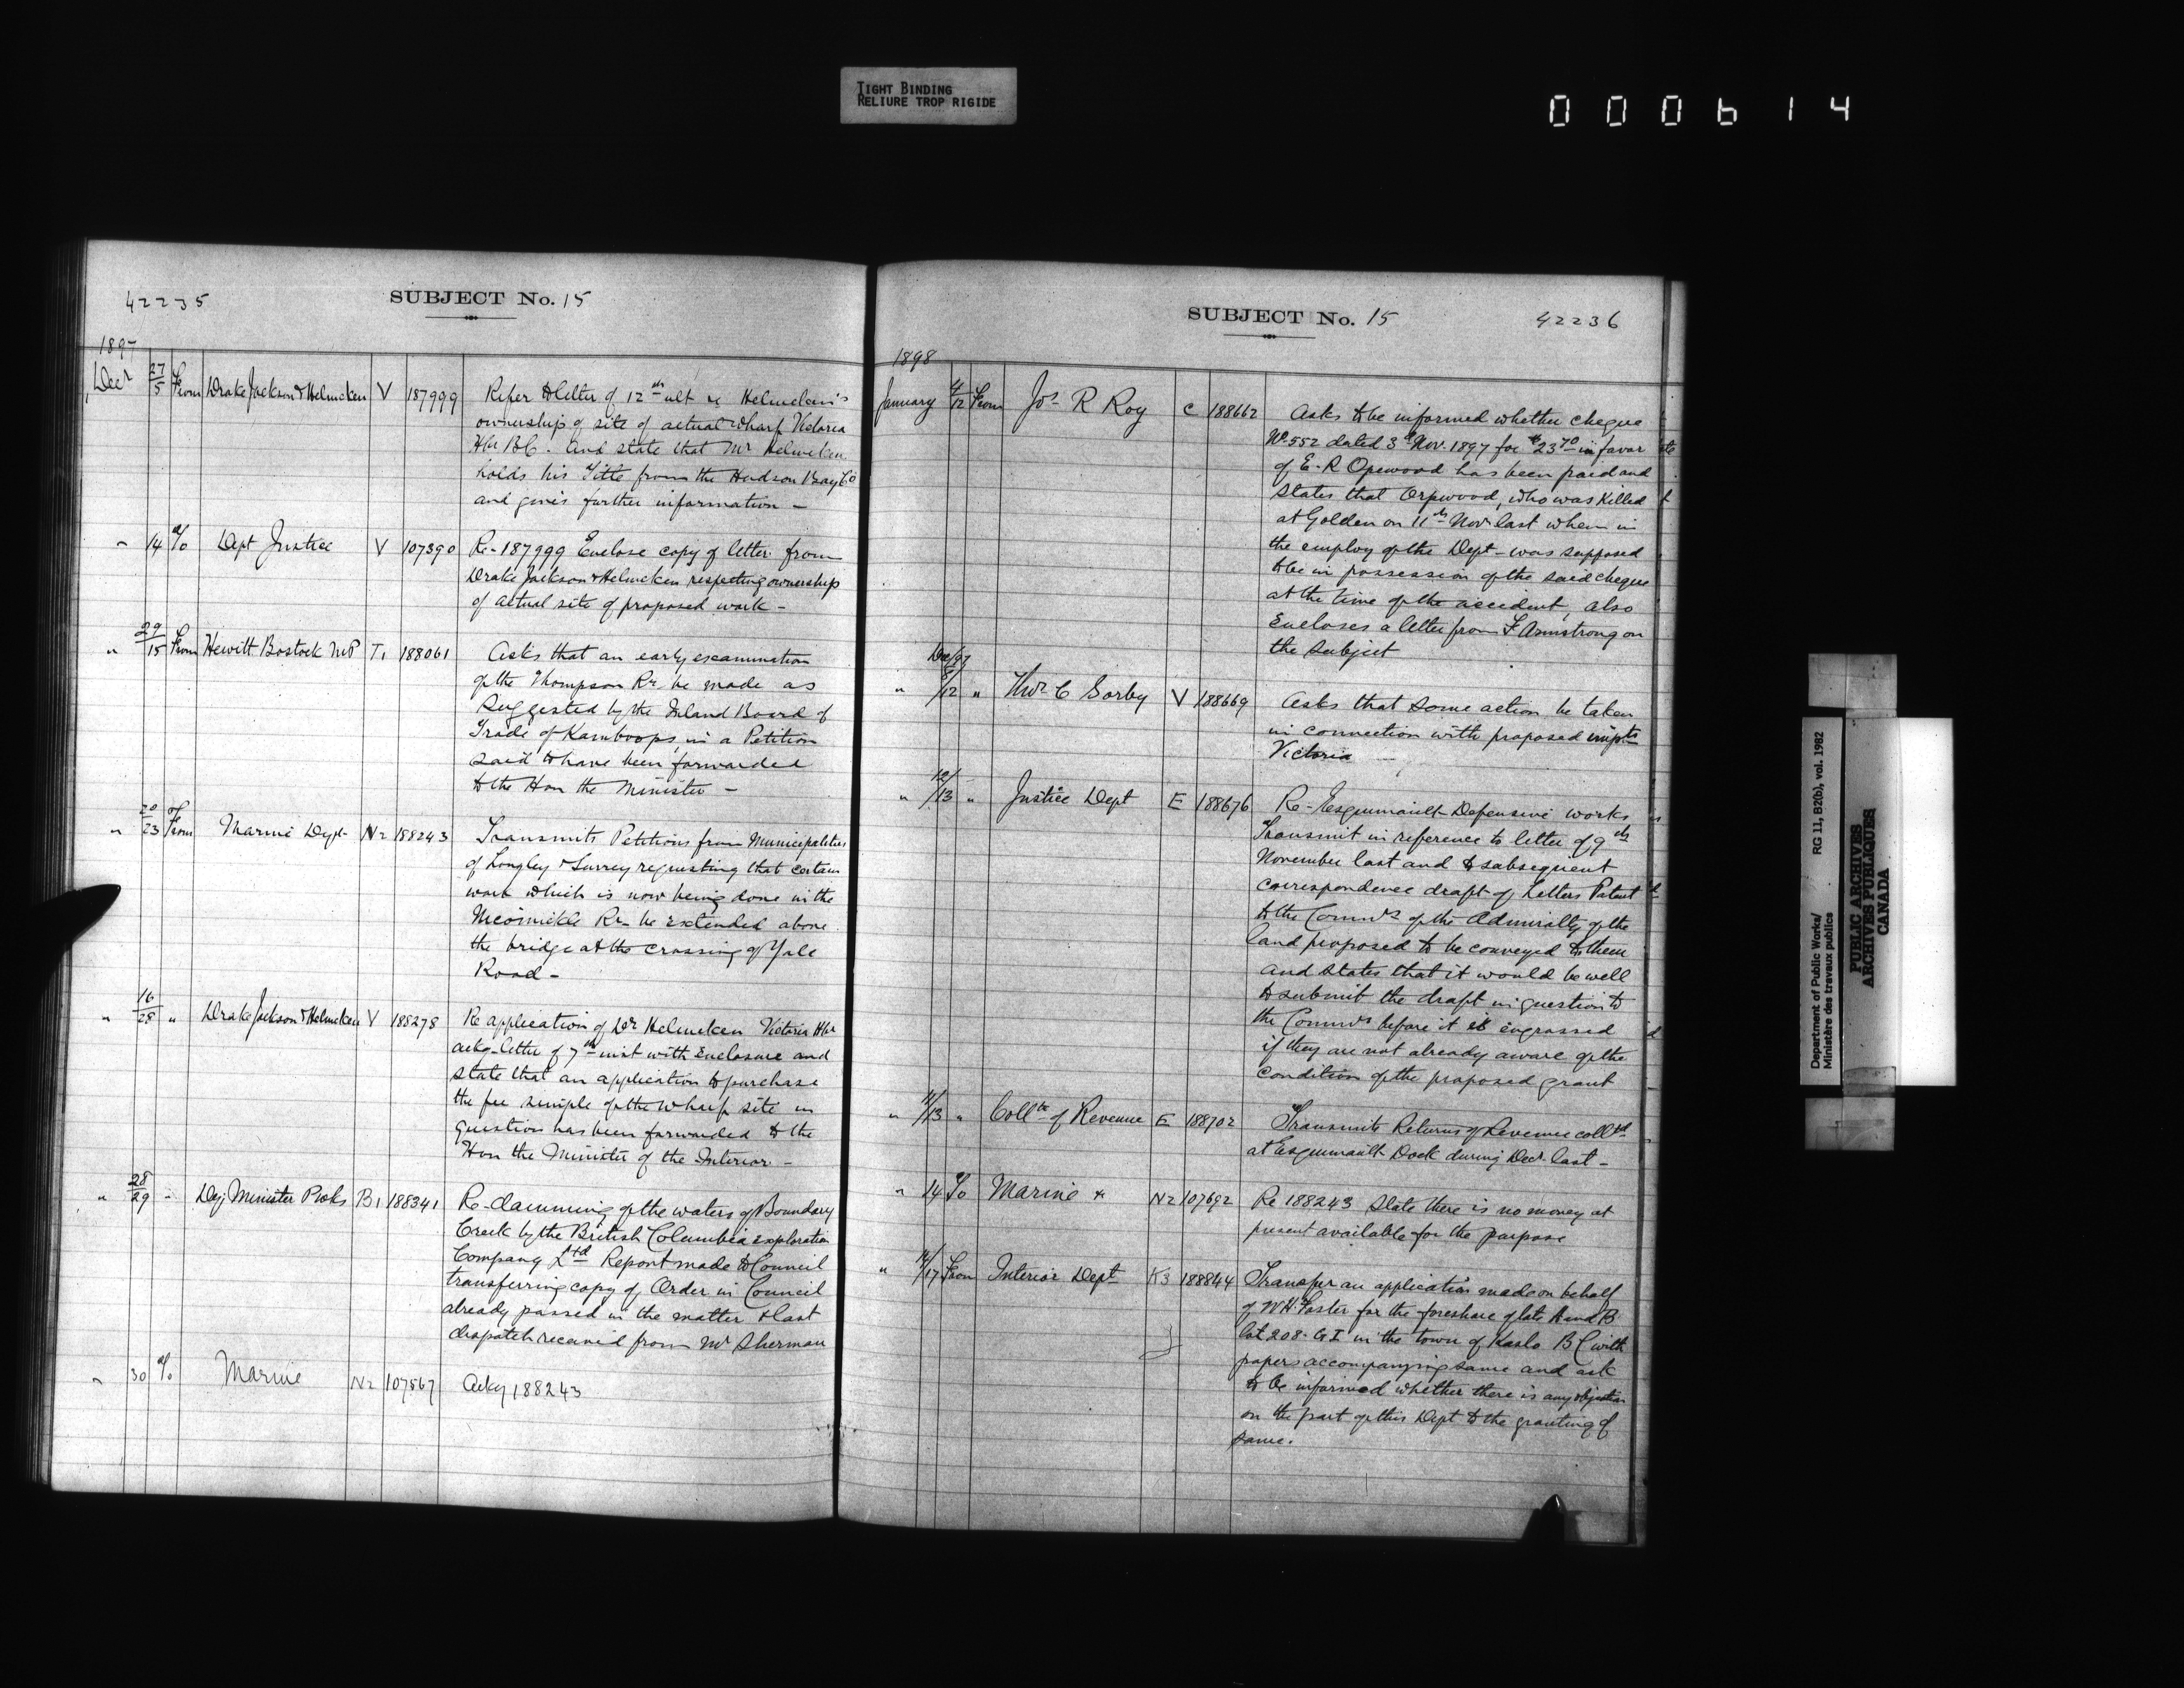 TIGHT BINDING
RELIURE TROP RIGIDE
000614
42235
SUBJECT No. 15
1897
Decr 27/5 From Drake Jackson & Helmcken V 187999 Refer to letter of 12th ult re Helmcken's
ownership of site of actual wharf Victoria
Hbr BC. and state that Mr Helmcken
holds his Title from the Hudson Bay Co
and gives further information –
" 14 To Dept Justice V 107390 Re-187999 Enclose copy of letter from
Drake Jackson & Helmcken respecting ownership
of actual site of proposed work –
" 29/15 From Hewitt Bostock MP T1 188061 Asks that an early examination
of the Thompson Rr. be made as
suggested by the Inland Board of
Trade of Kamloops, in a Petition
said to have been forwarded
to the Hon the Minister –
" 20/23 From Marine Dept N2 188243 Transmits Petitions from Municipalities
of Langley & Surrey requesting that certain
work which is now being done in the
Rr. be extended above
the bridge at the crossing of Yale
Road –
" 16/28 " Drake Jackson & Helmcken V 188278 Re application of Dr Helmcken Victoria Hbr
ackg letter of 7th inst with Enclosure and
state that an application to purchase
the fee simple of the wharf site in
question has been forwarded to the
Hon the Minister of the Interior –
" 28/29 " Dep Minister Pwks B1 188341 Re-damming of the waters of Boundary
Creek by the British Columbia exploration
Company Ltd Report made to Council
transferring copy of Order in Council
already passed in the matter & last
despatch received from Mr Sherman
" 30 To Marine N2 107567 Ackg 188243
SUBJECT No. 15
42236
1898
January 4/12 From Jos R Roy C 188662 Asks to be informed whether cheque
No 552 dated 3d Nov. 1897 for $23.70 in favor
of E. R Orpwood has been paid and
states that Orpwood, who was killed
at Golden on 11th Novr last when in
the employ of the Dept – was supposed
to be in possession of the said cheque
at the time of the accident, also
Encloses a letter from F Armstrong on
the subject
Dec/97
" 8/12 " Thos C Sorby V 188669 Asks that some action be taken
in connection with proposed impts
Victoria
" 12/13 " Justice Dept E 188676 Re-Esquimault Defensive works
Transmit in reference to letter of 9th
November last and to subsequent
correspondence draft of Letters Patent
to the Commrs of the Admiralty of the
land proposed to be conveyed to them
and states that it would be well
to submit the draft in question to
the Commrs before it is engrossed
if they are not already aware of the
condition of the proposed grant
" 11/13 " Colltr of Revenue E 188702 Transmits Returns of Revenue colltd
at Esquimault Dock during Decr last –
" 14 To Marine & N2 107692 Re 188243 State there is no money at
present available for the purpose
" 14/17 From Interior Dept K3 188844 Transfer an application made on behalf
of W.H. Foster for the foreshore of lots A and B
lot 208 – G I in the town of Kaslo B C with
papers accompanying same and ask
to be informed whether there is any objection
on the part of this Dept to the granting of
same.
Department of Public Works/ RG 11, B2(b), vol. 1982
Ministère des travaux publics
PUBLIC ARCHIVES
ARCHIVES PUBLIQUES
CANADA